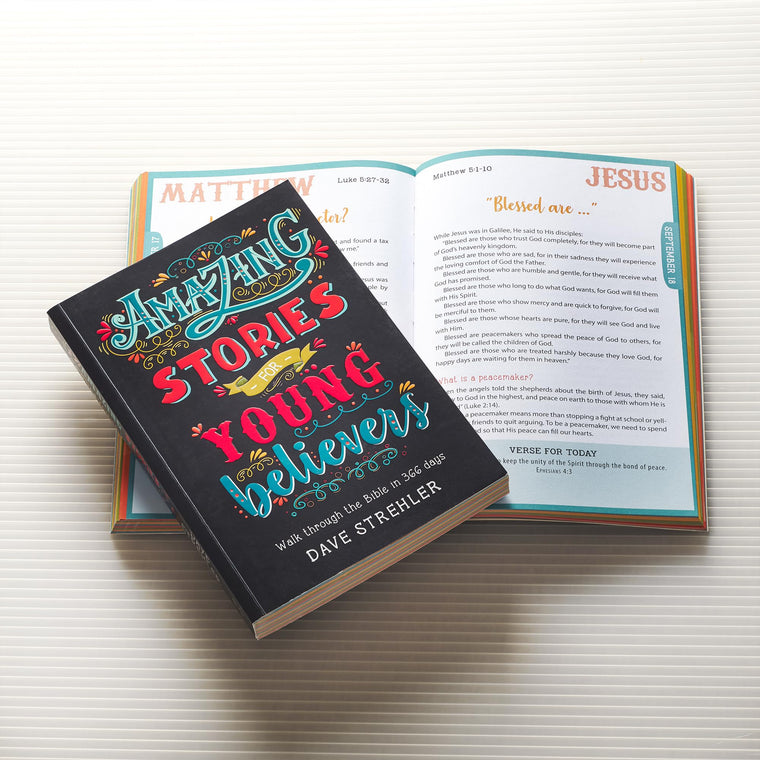 AMAZING
STORIES
FOR
YOUNG
believers
Walk through the Bible in 366 days
DAVE STREHLER
MATTHEW
Luke 5:27-32
ctor?
and found a tax
me."
friends and
Jesus was
ople by
but
17
Matthew 5:1-10
JESUS
"Blessed are ..."
While Jesus was in Galilee, He said to His disciples:
"Blessed are those who trust God completely, for they will become part
of God's heavenly kingdom.
Blessed are those who are sad, for in their sadness they will experience
the loving comfort of God the Father.
Blessed are those who are humble and gentle, for they will receive what
God has promised.
Blessed are those who long to do what God wants, for God will fill them
with His Spirit.
Blessed are those who show mercy and are quick to forgive, for God will
be merciful to them.
Blessed are those whose hearts are pure, for they will see God and live
with Him.
Blessed are peacemakers who spread the peace of God to others, for
they will be called the children of God.
Blessed are those who are treated harshly because they love God, for
happy days are waiting for them in heaven."
What is a peacemaker?
en the angels told the shepherds about the birth of Jesus, they said,
y to God in the highest, and peace on earth to those with whom He is
d" (Luke 2:14).
a peacemaker means more than stopping a fight at school or yell-
friends to quit arguing. To be a peacemaker, we need to spend
d so that His peace can fill our hearts.
VERSE FOR TODAY
keep the unity of the Spirit through the bond of peace.
EPHESIANS 4:3
SEPTEMBER 18